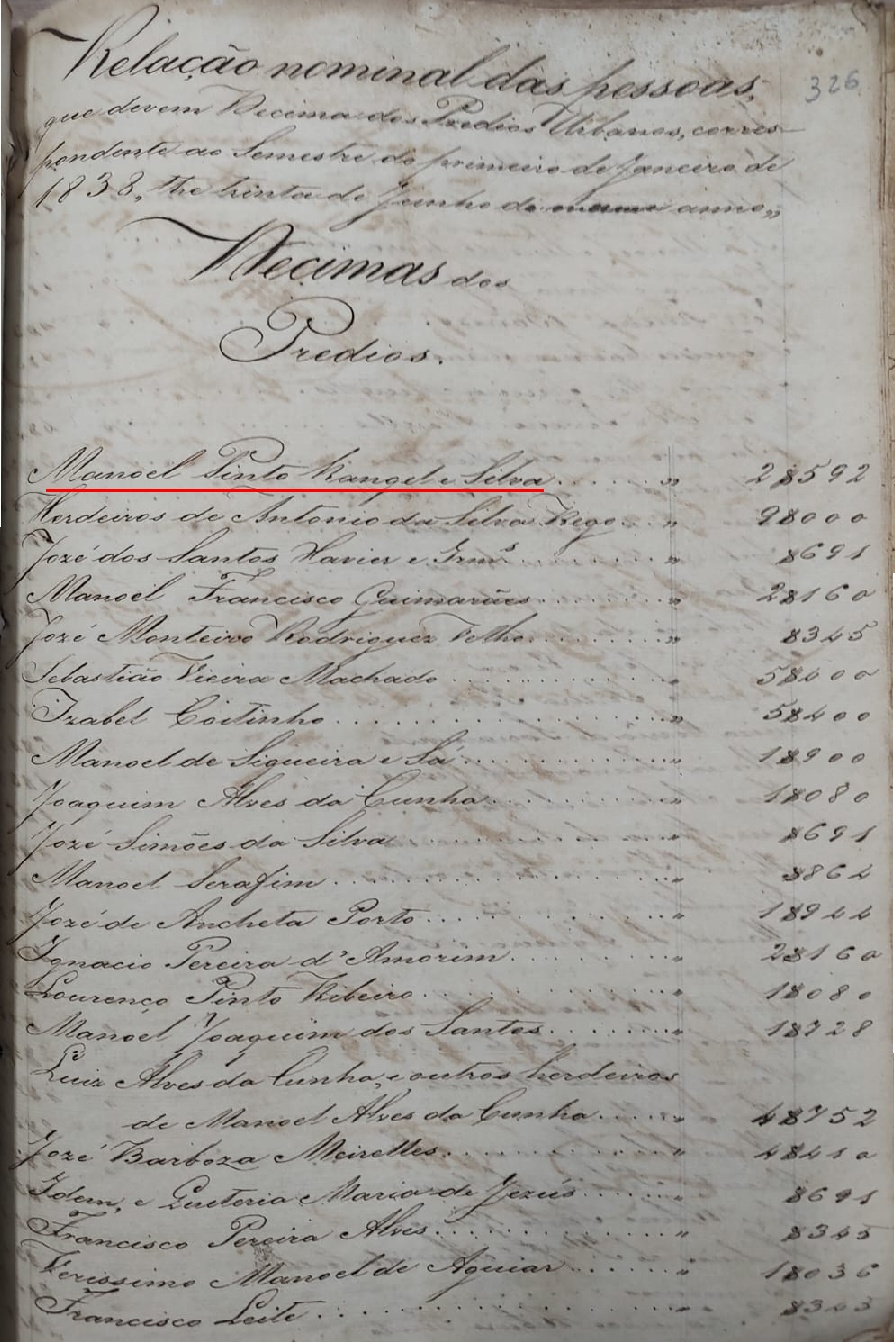 326
Relação nominal das pessoas,
que devem Decima dos Predios Urbanos, corres-
pondente ao Semestre do primeiro de Janeiro de
1838, the trinta de Junho do mesmo anno,,
Decimas dos
Predios.
Manoel Pinto Rangel e Silva ....... " 2$592
Herdeiros de Antonio da Silva Rego ... " 9$000
Jozé dos Santos Xavier e Irm.s ....... " $691
Manoel Francisco Guimarães ....... " 2$160
Jozé Monteiro Rodriguez Velho ....... " $345
Sebastião Vieira Machado ....... " 5$400
Izabel Coitinho ....... " 5$400
Manoel de Siqueira e Sá ....... " 1$900
Joaquim Alves da Cunha ....... " 1$080
Jozé Simões da Silva ....... " $691
Manoel Serafim ....... " $864
Jozé de Ancheta Porto ....... " 1$944
Ignacio Pereira d'Amorim ....... " 2$160
Lourenço Pinto Ribeiro ....... " 1$080
Manoel Joaquim dos Santos ....... " 1$728
Luiz Alves da Cunha, e outros herdeiros
de Manoel Alves da Cunha ..... " 4$752
Jozé Barboza Meirelles ....... " 4$410
Idem, e Quiteria Maria de Jezús ...... " $691
Francisco Pereira Alves ....... " $345
Verissimo Manoel de Aguiar ....... " 1$036
Francisco Leite ....... " $345